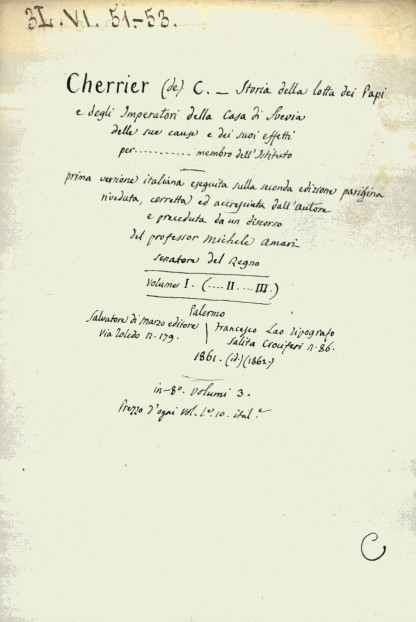 3L. VI. 51-53.
Cherrier (de) C. — Storia della lotta dei Papi
e degli Imperatori della Casa di Svevia
delle sue cause e dei suoi effetti
per ........... membro dell'Istituto
prima versione italiana eseguita sulla seconda edizione parigina
riveduta, corretta ed accresciuta dall'autore
e preceduta da un discorso
del professor Michele Amari
senatore del Regno
Volume I. (.... II .... III.)
Palermo
Salvatore di Marzo editore | Francesco Lao Tipografo
Via Toledo n. 179. | Salita Crociferi n. 86.
1861. (id.) (1862.)
in-8º. volumi 3.
Prezzo d'ogni vol. Lᵉ. 10. ital.ᵉ
C